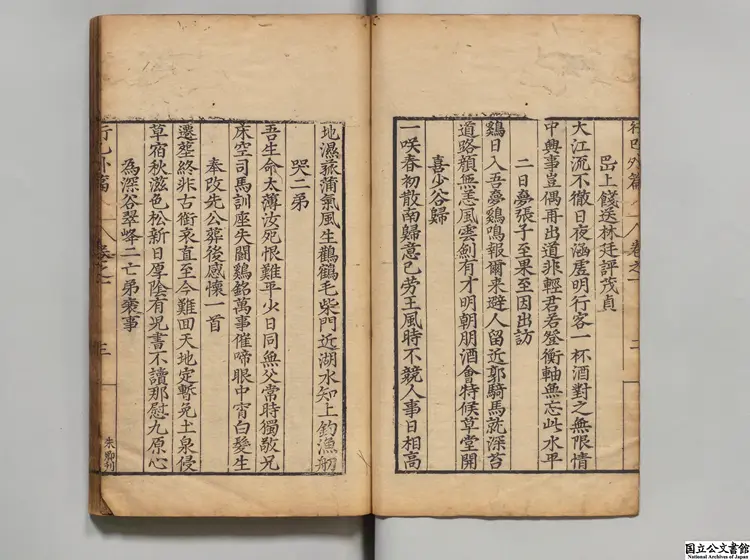 行已外篇 八卷之一 二
岊上餞送林廷評茂貞
大江流不徹日夜涵虛明行客一杯酒對之無限情
中興事豈偶再出道非輕君若登衡軸無忘此水平
二日夢張子至果至因出訪
鷄日入吾夢鷄鳴報爾來避人留近郭騎馬就深苔
道路顏無恙風雲劍有才明朝朋酒會特候草堂開
喜少谷歸
一咲春初散南歸意已勞王風時不競人事日相高
地濕蓀蒲氣風生鸛鶴毛柴門近湖水知上釣漁舠
哭二弟
吾生命太薄汝死恨難平少日同無父常時獨敬兄
床空司馬訓座失鬪鷄銘萬事催啼眼中宵白髮生
奉改先公葬後感懷一首
遷塋終非古銜哀直至今難回天地定暫免土泉侵
草宿秋滋色松新日厚陰有兒書不讀那慰九原心
為深谷翠峰二亡弟襄事
行已外篇 八卷之一 三
朱卿刊
国立公文書館
National Archives of Japan